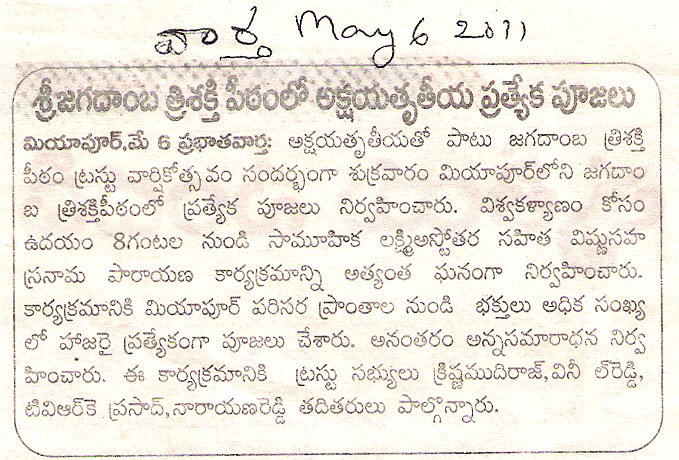 వార్త May 6 2011
శ్రీజగదాంబ త్రిశక్తి పీఠంలో అక్షయతృతీయ ప్రత్యేక పూజలు
మియాపూర్,మే 6 ప్రభాతవార్త: అక్షయతృతీయతో పాటు జగదాంబ త్రిశక్తి
పీఠం ట్రస్టు వార్షికోత్సవం సందర్భంగా శుక్రవారం మియాపూర్‌లోని జగదాం
బ త్రిశక్తిపీఠంలో ప్రత్యేక పూజలు నిర్వహించారు. విశ్వకళ్యాణం కోసం
ఉదయం 8గంటల నుండి సామూహిక లక్ష్మీఅస్టోతర సహిత విష్ణుసహ
స్రనామ పారాయణ కార్యక్రమాన్ని అత్యంత ఘనంగా నిర్వహించారు.
కార్యక్రమానికి మియాపూర్ పరిసర ప్రాంతాల నుండి భక్తులు అధిక సంఖ్య
లో హాజరై ప్రత్యేకంగా పూజలు చేశారు. అనంతరం అన్నసమారాధన నిర్వ
హించారు. ఈ కార్యక్రమానికి ట్రస్టు సభ్యులు క్రిష్ణముదిరాజ్,వినీ ల్‌రెడ్డి,
టివిఆర్‌కె ప్రసాద్,నారాయణరెడ్డి తదితరులు పాల్గొన్నారు.